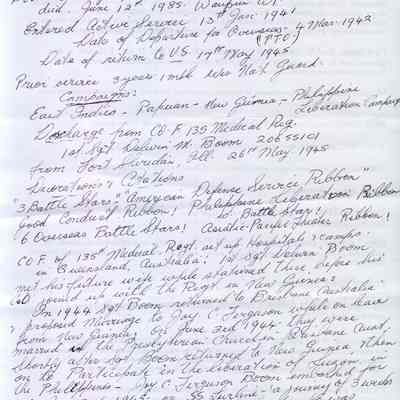 died June 12th 1985. Waupun Wi.
Entered Active Service 13th Jan. 1941
Date of Departure for Overseas - 4 Mar. 1942
(PTO)
Date of return to U.S. 17th May 1945
Prior service 3 years 1 mth Wis Nat Guard.
Campaigns:
East Indies - Papuan - New Guinea - Philippine
Liberation Campaign
Discharge from CO-F 135 Medical Reg.
1st Sgt Delwin M. Boom 20655101
from Fort Sheridan, Ill. 26th May 1945
Decorations & Citations
"3 Battle Stars" American Defense Service Ribbon"
Good Conduct Ribbon! Philippine Liberation Ribbon
w. Battle Star!
"6 Overseas Battle Stars! Asiatic-Pacific Theater Ribbon!
CO F w/ 135th Medical Regt. set up Hospitals & camps.
in Queensland, Australia! 1st Sgt Delwin Boom
met his future wife while stationed there, before his
CO joined up with the Regt in New Guinea!
In 1944 Sgt Boom returned to Brisbane Australia.
& proposed Marriage to Joy C. Ferguson while on leave
from New Guinea. On June 3rd 1944 they were
married in the Presbyterian Church in Brisbane Aust,
Shortly after Sgt Boom returned to New Guinea then
on to Participate in the liberation of Luzon, in
the Philippines - Joy C Ferguson Boom embarked for
1945. on SS Lurline - a journey of 3 weeks